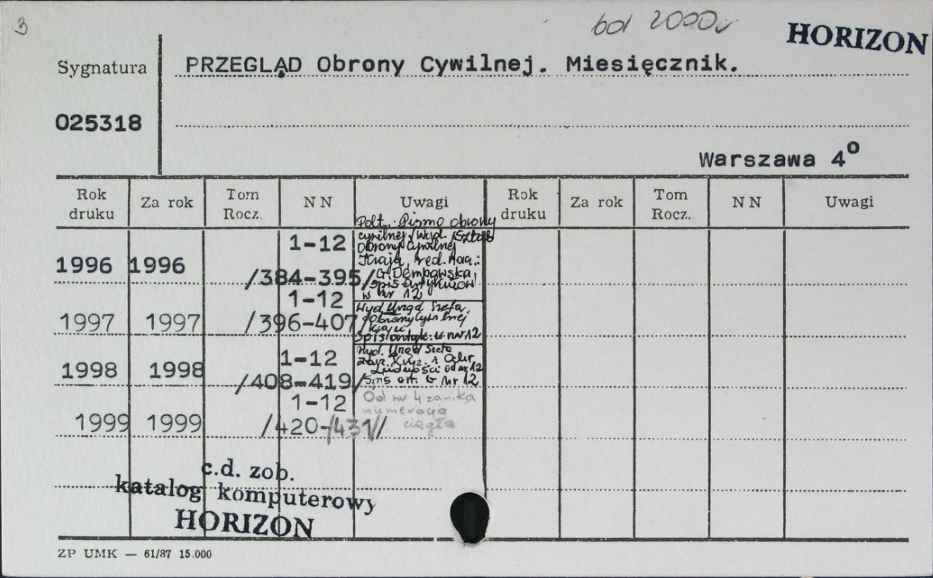 3
od 2000
HORIZON
Sygnatura PRZEGLĄD Obrony Cywilnej. Miesięcznik.
025318
Warszawa 4°
Rok druku Za rok Tom Rocz. NN Uwagi Rok druku Za rok Tom Rocz. NN Uwagi
Podt.: Pismo obrony
cywilnej. Wyd. Sztab
Obrony Cywilnej
Kraju, red. nacz.:
G. Dembowska,
spis artykułów
w nr 12
1996 1996 1-12
/384-395/
1997 1997 1-12
/396-407/
Wyd. Urząd Szefa
Obrony Cywilnej
Kraju
Spis artyk. w nr 12
1998 1998 1-12
/408-419/
Wyd. Urząd Szefa
Zarz. Kryz. i Ochr.
Ludności od nr 12
Spis art. w nr 12
1999 1999 1-12
/420-431/
Od nr 4 zanika
numeracja
ciągła
c.d. zob.
katalog komputerowy
HORIZON
ZP UMK — 61/87 15.000